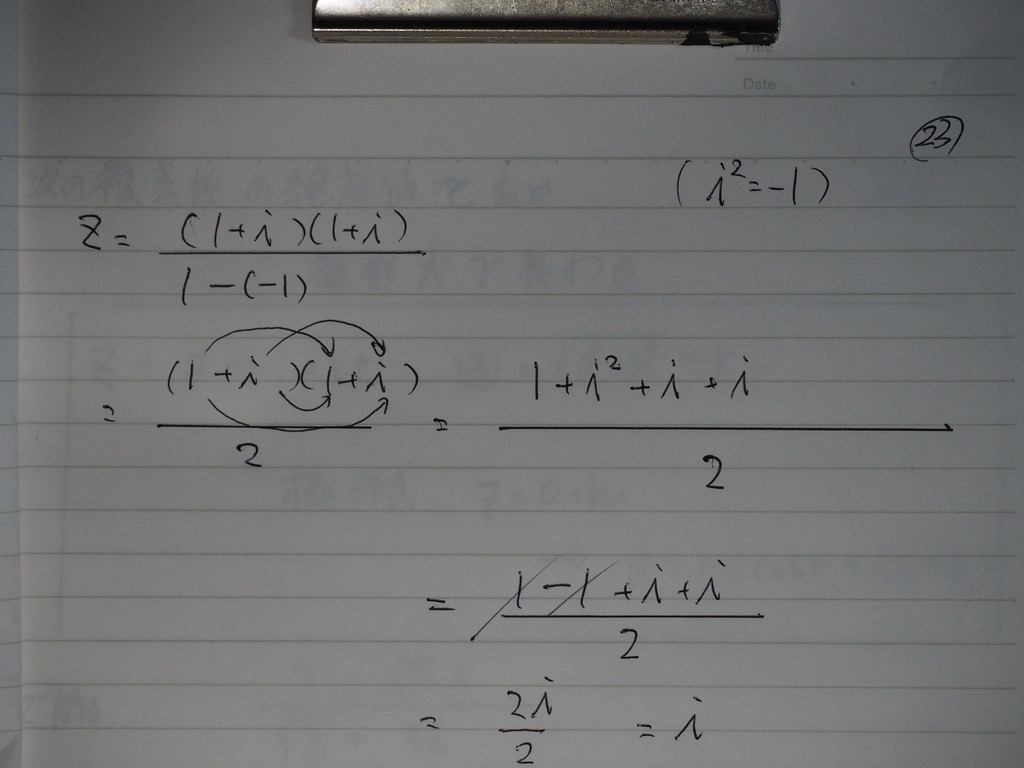 Title
Date
(23)
(i² = -1)
Z = (1+i)(1+i) / 1-(-1)
= (1+i)(1+i) / 2 = 1+i²+i+i / 2
= 1-1+i+i / 2
= 2i / 2 = i